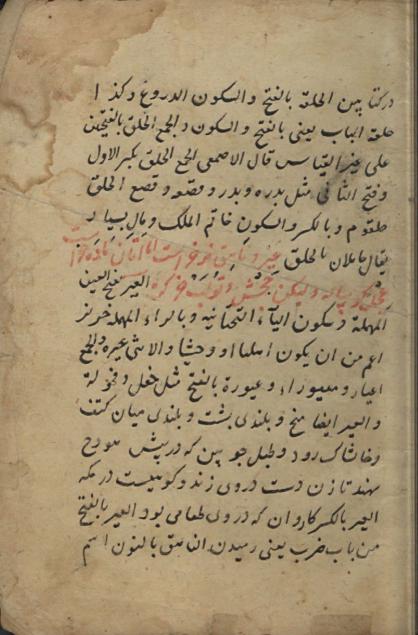 در کتابین الحلقة بالفتح والسکون الدروع وکذا
حلقة الباب یعنی بالفتح والسکون والجمع الحلق بالفتحتین
علی غیر القیاس قال الاصمعی الجمع الحلق بکسر الاول
وفتح الثانی مثل بدره وبدر وقصعه وقصع الحلق
حلقوم وبالکسر والسکون خاتم الملک ومال بسیار
یقال فلان بالحلق عیر و خر است اتان ماده
جحش کره العیر بفتح العین
المهملة وسکون الیاء التحتانیه وبالراء المهمله خر نر
اعم من ان یکون اهلیا او وحشیا والانثی عیره والجمع
اعیار ومعیوراء وعیورة بالفتح مثل فحل وفحولة
والعیر ایضا میخ وبلندی پشت وبلندی میان کتف
وخاشاک رود وطبل چوبین که در پیش هودج
نهند تا زن دست در وی زند وکوهیست در مکه
العیر بالکسر کاروان که در وی طعامی بود العیر بالفتح
من باب ضرب یعنی رمیدن بالنون اسم